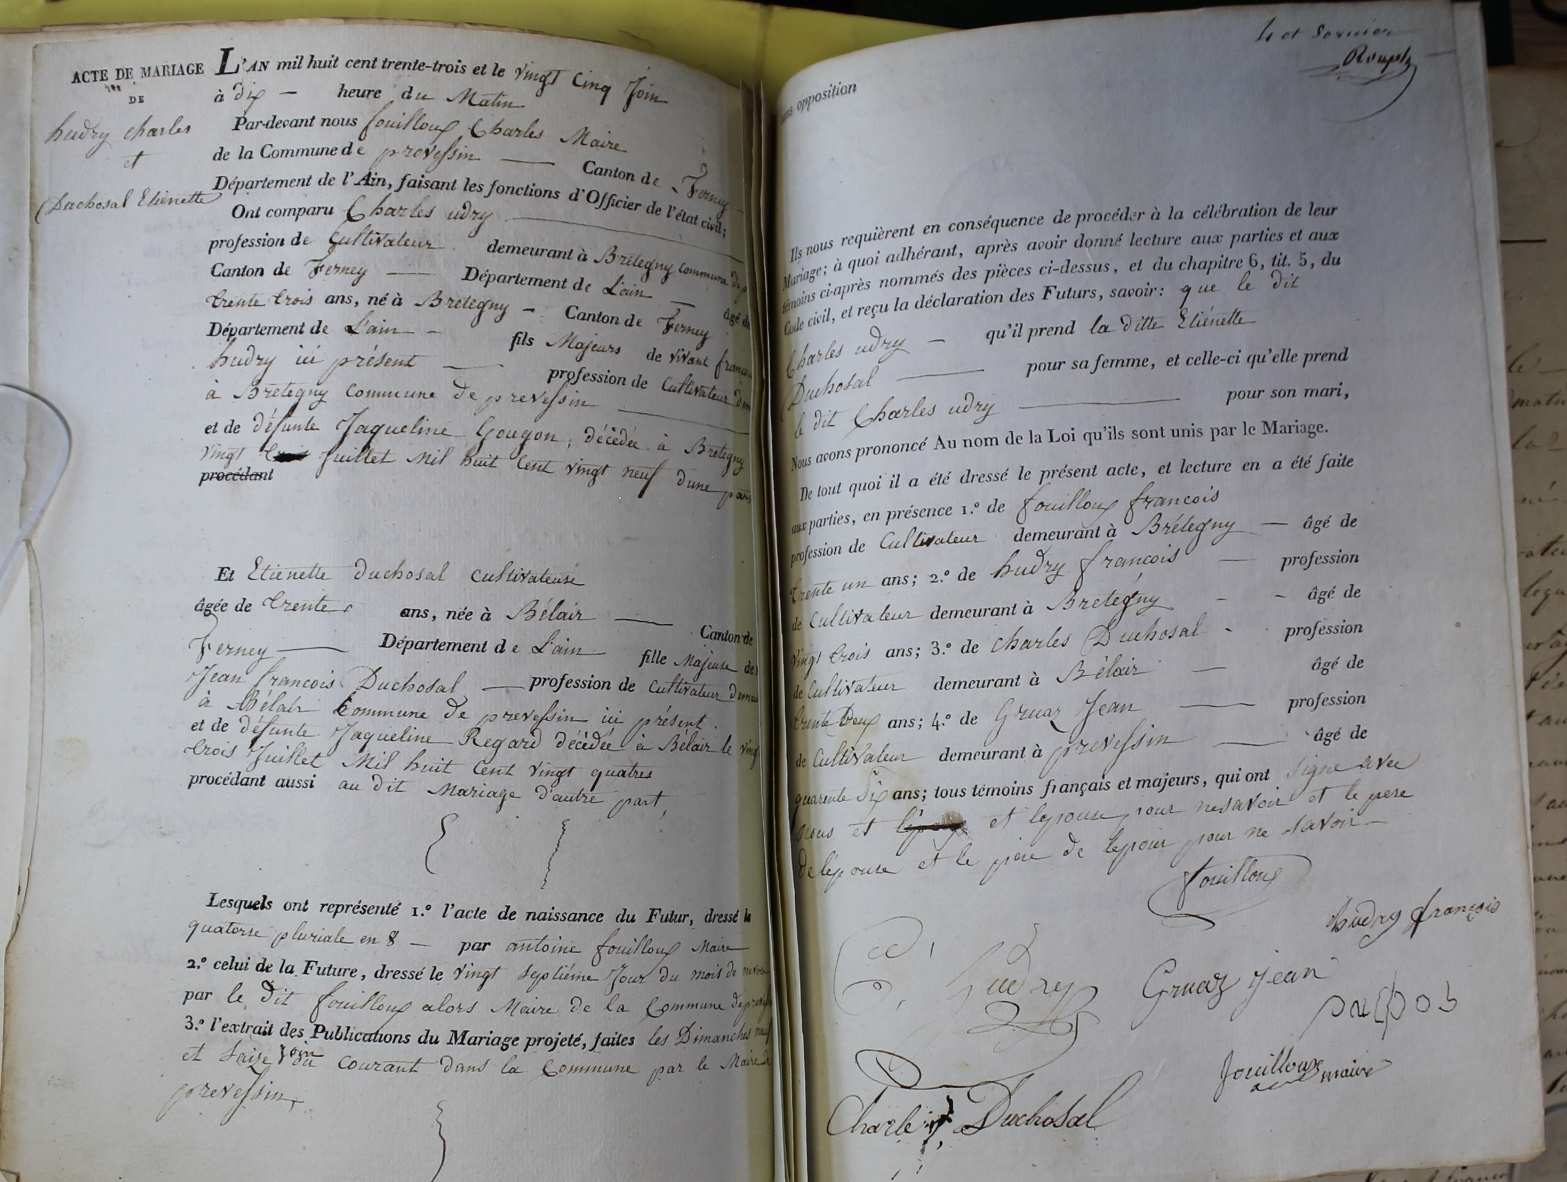 ACTE DE MARIAGE
DE
hudry charles
et
Duchosal Etiénette
L'AN mil huit cent trente-trois et le vingt cinq Join
à dix — heure du Matin
Par-devant nous fouilloux Charles Maire
de la Commune de prevessin — Canton de Ferney
Département de l'Ain, faisant les fonctions d'Officier de l'état civil;
Ont comparu Charles udry
profession de Cultivateur demeurant à Brétegny commune de
Canton de Ferney — Département de L'ain — âgé de
trente trois ans, né à Brétegny - Canton de Ferney
Département de L'ain - fils Majeurs de vivant
hudry ici présent — profession de Cultivateur
à Brétegny Commune de prevessin
et de défunte Jaqueline Gougon, décédée à Brétegny
vingt juillet Mil huit Cent vingt neuf dune
procédant
Et Etienette duchosal Cultivateuse
âgée de trente ans, née à Bélair — Canton de
Ferney — Département de L'ain fille Majeure de
Jean francois Duchosal — profession de Cultivateur
à Bélair Commune de prevessin ici présent.
et de défunte Jaqueline Regard décédée à Bélair le
trois Juillet Mil huit Cent vingt quatre
procédant aussi au dit Mariage d'autre part,
Lesquels ont représenté 1.º l'acte de naissance du Futur, dressé le
quatorse pluriale en 8 — par antoine fouilloux Maire
2.º celui de la Future, dressé le vingt septiéme Jour du mois de
par le Dit fouilloux alors Maire de la Commune de
3.º l'extrait des Publications du Mariage projeté, faites les Dimanches
et Saise Join du courant dans la Commune par le Maire
prevessin
4 et dernier
opposition
Ils nous requièrent en conséquence de procéder à la célébration de leur
Mariage; à quoi adhérant, après avoir donné lecture aux parties et aux
témoins ci-après nommés des pièces ci-dessus, et du chapitre 6, tit. 5, du
Code civil, et reçu la déclaration des Futurs, savoir: que le dit
Charles udry — qu'il prend la ditte Etiénette
Duchosal — pour sa femme, et celle-ci qu'elle prend
le dit Charles udry — pour son mari,
Nous avons prononcé Au nom de la Loi qu'ils sont unis par le Mariage.
De tout quoi il a été dressé le présent acte, et lecture en a été faite
aux parties, en présence 1.º de fouilloux francois
profession de Cultivateur demeurant à Brétegny — âgé de
trente un ans; 2.º de hudry francois — profession
de Cultivateur demeurant à Bretegny - - âgé de
vingt trois ans; 3.º de Charles Duchosal - profession
de Cultivateur demeurant à Bélair — âgé de
trente Deux ans; 4.º de Gruaz Jean — profession
de Cultivateur demeurant à prevessin — âgé de
quarente Dix ans; tous témoins français et majeurs, qui ont signé avec
nous et et lepouse pour nesavoir et le pere
de lépouse et le pére de lepour pour ne savoir —
fouilloux
hudry françois
hudry
Gruaz jean
fouilloux maire
Charle Duchosal